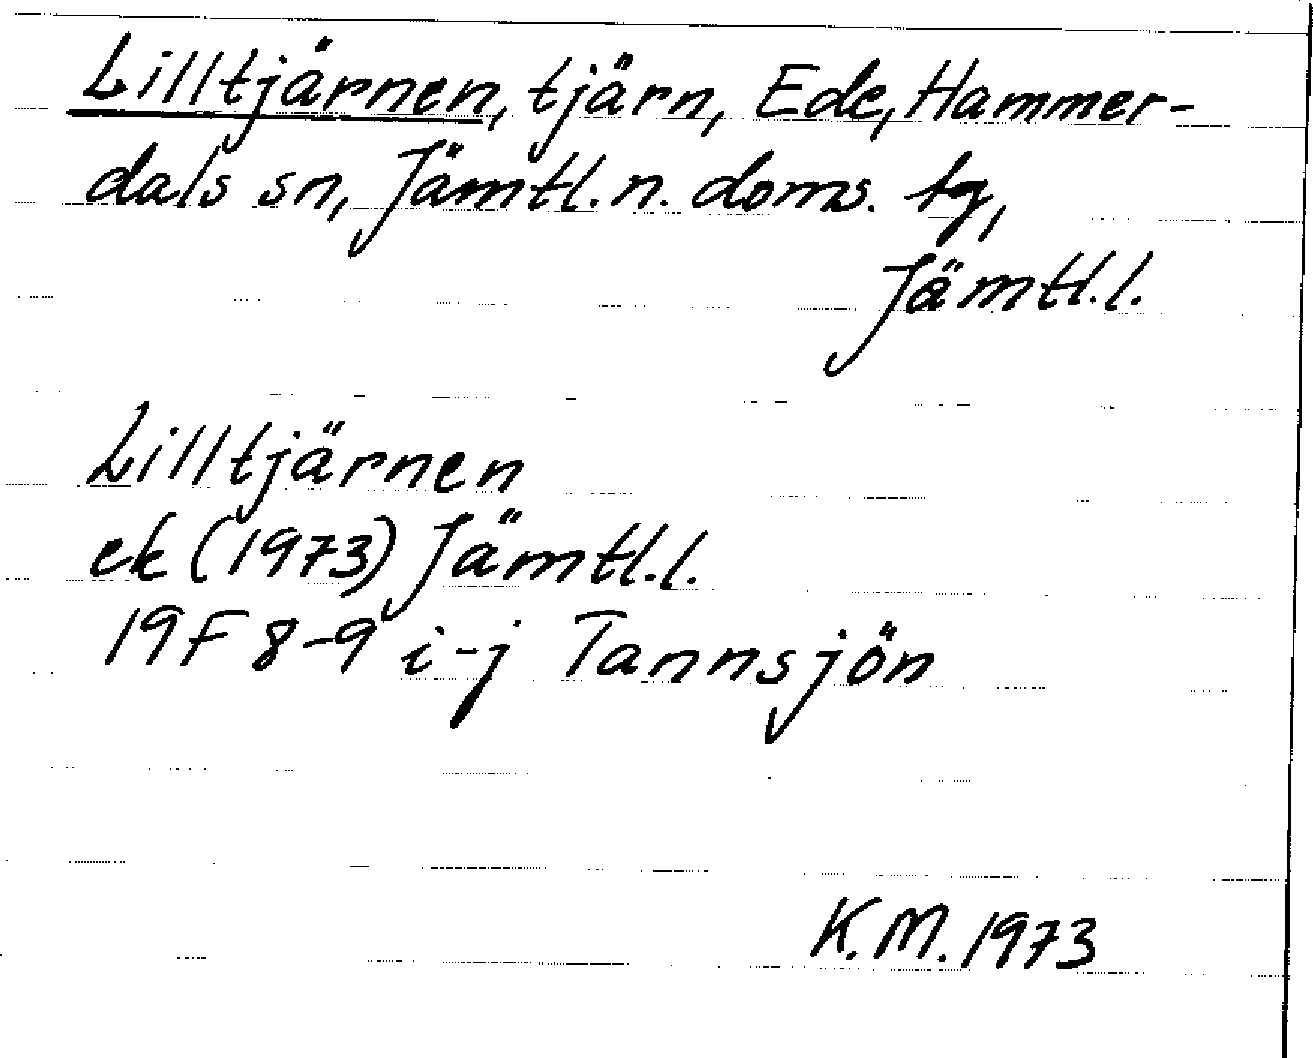 Lilltjärnen, tjärn, Ede, Hammer-
dals sn, Jämtl. n. doms. tg,
Jämtl.l.
Lilltjärnen
ek (1973) Jämtl.l.
19F 8-9 i-j Tannsjön
K.M. 1973